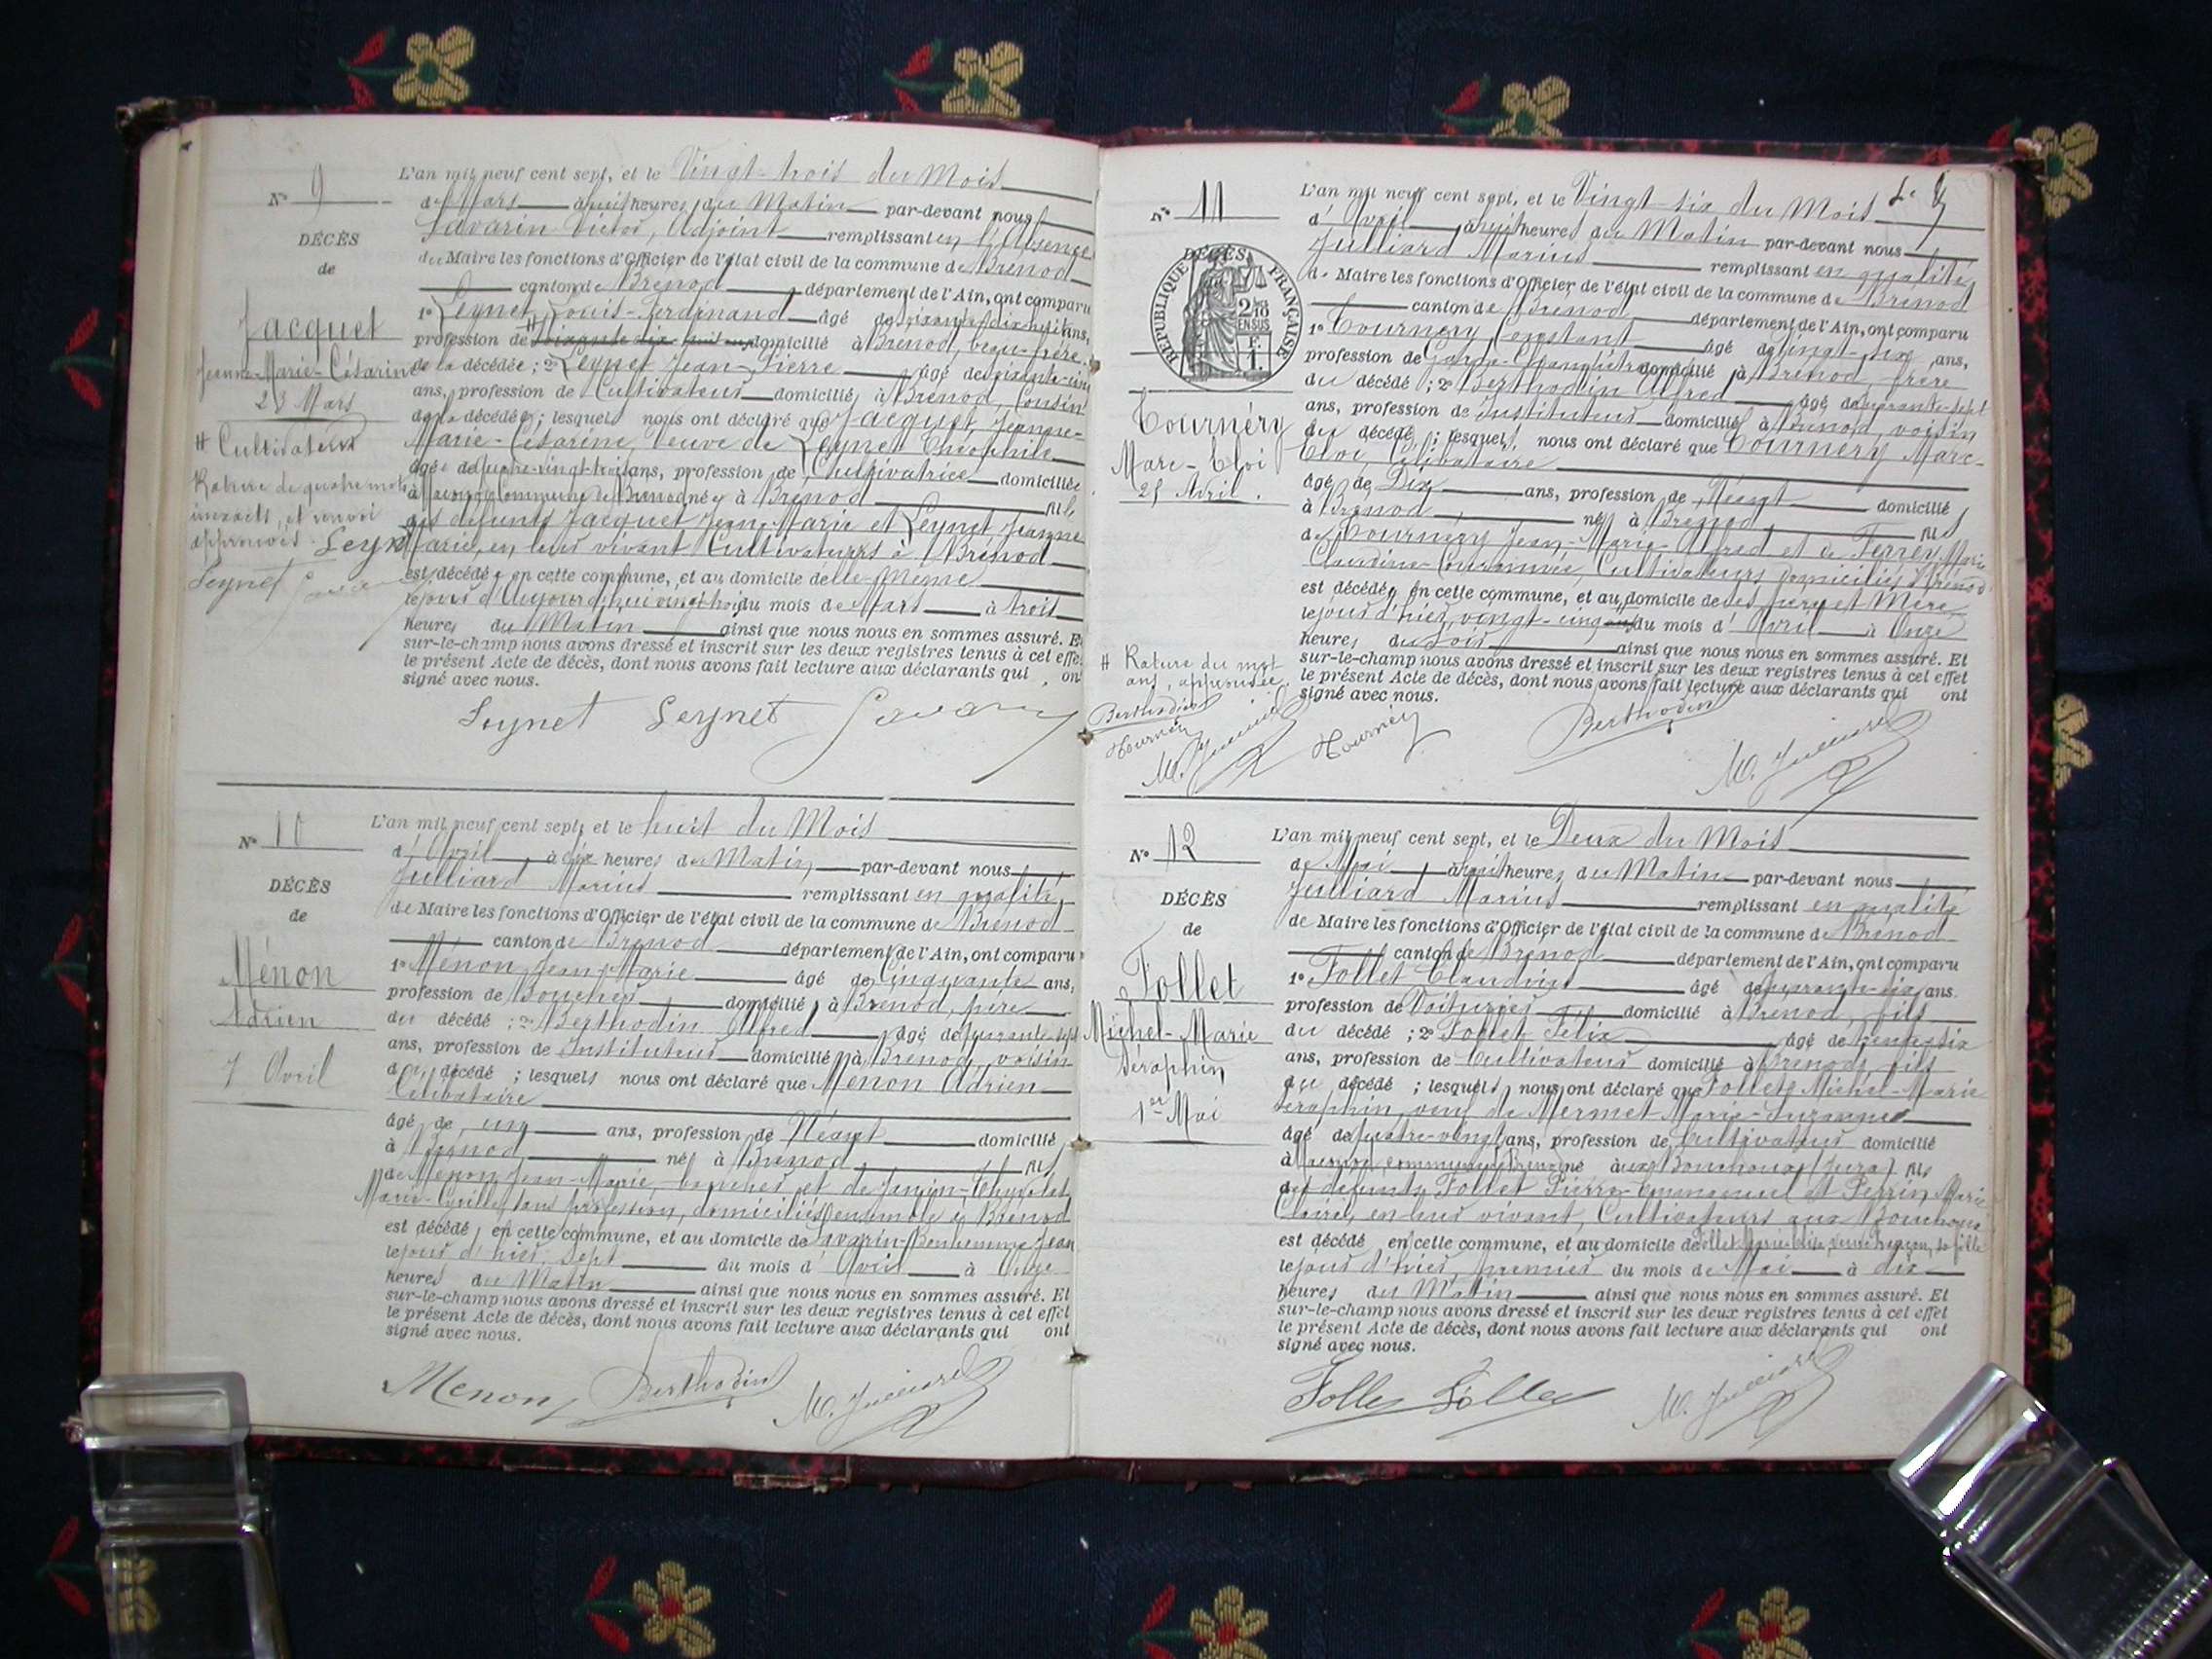 N° 9
DÉCÈS
de
Jacquet
Jeanne-Marie-Césarine
23 Mars
# Cultivateur
Rature de quatre mots
inexacts, et renvoi
approuvés. Leynet
Leynet Savarin
L'an mil neuf cent sept, et le Vingt-trois du Mois
de Mars à huit heures du Matin par-devant nous
Savarin Victor, Adjoint remplissant en l'Absence
du Maire les fonctions d'Officier de l'état civil de la commune de Brénod
canton de Brénod département de l'Ain, ont comparu
1° Leynet, Louis-Ferdinand âgé de soixante-dix-huit ans,
profession de # domicilié à Brénod, beau-frère
de la décédée; 2° Leynet Jean-Pierre âgé de soixante-cinq
ans, profession de Cultivateur domicilié à Brénod, Cousin
de la décédée; lesquels nous ont déclaré que Jacquet, Jeanne-
Marie-Césarine, Veuve de Leynet Théophile
âgée de quatre-vingt-trois ans, profession de Cultivatrice domiciliée
à Commune de Brénod née à Brénod fille
des défunts Jacquet Jean-Marie et Leynet, Jeanne
Marie, en leur vivant Cultivateurs à Brénod
est décédée en cette commune, et au domicile de elle-Même
le jour d'Aujourd'hui vingt-trois du mois de Mars à trois
heures du Matin ainsi que nous nous en sommes assuré. Et
sur-le-champ nous avons dressé et inscrit sur les deux registres tenus à cet effet
le présent Acte de décès, dont nous avons fait lecture aux déclarants qui ont
signé avec nous.
Leynet Leynet Savarin
N° 10
DÉCÈS
de
Ménon
Adrien
7 Avril
L'an mil neuf cent sept, et le huit du Mois
d'Avril à dix heures du Matin par-devant nous
Julliard Marius remplissant en qualité
de Maire les fonctions d'Officier de l'état civil de la commune de Brénod
canton de Brénod département de l'Ain, ont comparu
1° Ménon Jean-Marie âgé de Cinquante ans,
profession de Boucher domicilié à Brénod, père
du décédé; 2° Berthodin Alfred âgé de quarante-sept
ans, profession de Instituteur domicilié à Brénod, voisin
du décédé; lesquels nous ont déclaré que Ménon Adrien
Célibataire
âgé de un ans, profession de Néant domicilié
à Brénod né à Brénod fils
de Ménon Jean-Marie, boucher, et de
Marie- sans profession, domiciliés ensemble à Brénod
est décédé, en cette commune, et au domicile de Savarin-Bonhomme Jean
le jour d'hier, Sept du mois d'Avril à Onze
heures du Matin ainsi que nous nous en sommes assuré. Et
sur-le-champ nous avons dressé et inscrit sur les deux registres tenus à cet effet
le présent Acte de décès, dont nous avons fait lecture aux déclarants qui ont
signé avec nous.
Menon Berthodin M. Julliard
N° 11
DÉCÈS
RÉPUBLIQUE FRANÇAISE
2/10 EN SUS
F. 1.
Tournéry
Marc-Eloi
25 Avril.
# Rature du mot
ans, approuvée.
Berthodin
Tournéry
M. Julliard
L'an mil neuf cent sept, et le Vingt-six du Mois
d'Avril à huit heures du Matin par-devant nous
Julliard Marius remplissant en qualité
de Maire les fonctions d'Officier de l'état civil de la commune de Brénod
canton de Brénod département de l'Ain, ont comparu
1° Tournéry Constant âgé de vingt-six ans,
profession de Garde-Champêtre domicilié à Brénod, frère
du décédé; 2° Berthodin Alfred âgé de quarante-sept
ans, profession de Instituteur domicilié à Brénod, voisin
du décédé; lesquels nous ont déclaré que Tournéry Marc-
Eloi, Célibataire
âgé de Dix ans, profession de Néant domicilié
à Brénod né à Brénod fils
de Tournéry Jean-Marie-Alfred et de Ferrer, Marie
Claudine- Cultivateurs domiciliés à Brénod
est décédé, en cette commune, et au domicile de ses père et Mère
le jour d'hier, vingt-cinq ans du mois d'Avril à Onze
heures du Soir ainsi que nous nous en sommes assuré. Et
sur-le-champ nous avons dressé et inscrit sur les deux registres tenus à cet effet
le présent Acte de décès, dont nous avons fait lecture aux déclarants qui ont
signé avec nous.
Tournéry Berthodin M. Julliard
N° 12
DÉCÈS
de
Follet
Michel-Marie
Séraphin
1er Mai
L'an mil neuf cent sept, et le Deux du Mois
de Mai à huit heures du Matin par-devant nous
Julliard Marius remplissant en qualité
de Maire les fonctions d'Officier de l'état civil de la commune de Brénod
canton de Brénod département de l'Ain, ont comparu
1° Follet Claudius âgé de quarante-six ans.
profession de Voiturier domicilié à Brénod, fils
du décédé; 2° Follet Félix âgé de trente-six
ans, profession de Cultivateur domicilié à Brénod, fils
du décédé; lesquels nous ont déclaré que Follet Michel-Marie
Séraphin, veuf de Mermet Marie-Suzanne
âgé de quatre-vingt ans, profession de Cultivateur domicilié
à commune Brénod né aux Bouchoux (Jura) fils
des défunts Follet Pierre-Emmanuel et Perrin Marie
Claire, en leur vivant, Cultivateurs aux Bouchoux
est décédé en cette commune, et au domicile de Follet sa fille
le jour d'hier, premier du mois de Mai à dix
heures du Matin ainsi que nous nous en sommes assuré. Et
sur-le-champ nous avons dressé et inscrit sur les deux registres tenus à cet effet
le présent Acte de décès, dont nous avons fait lecture aux déclarants qui ont
signé avec nous.
Follet Follet M. Julliard